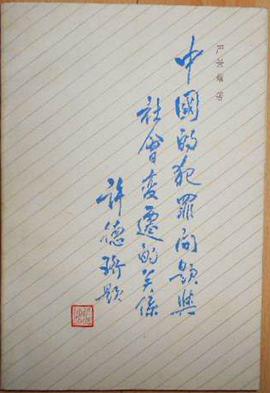 严景耀著
中國的犯罪问题與
社会变遷的关係
许德珩题